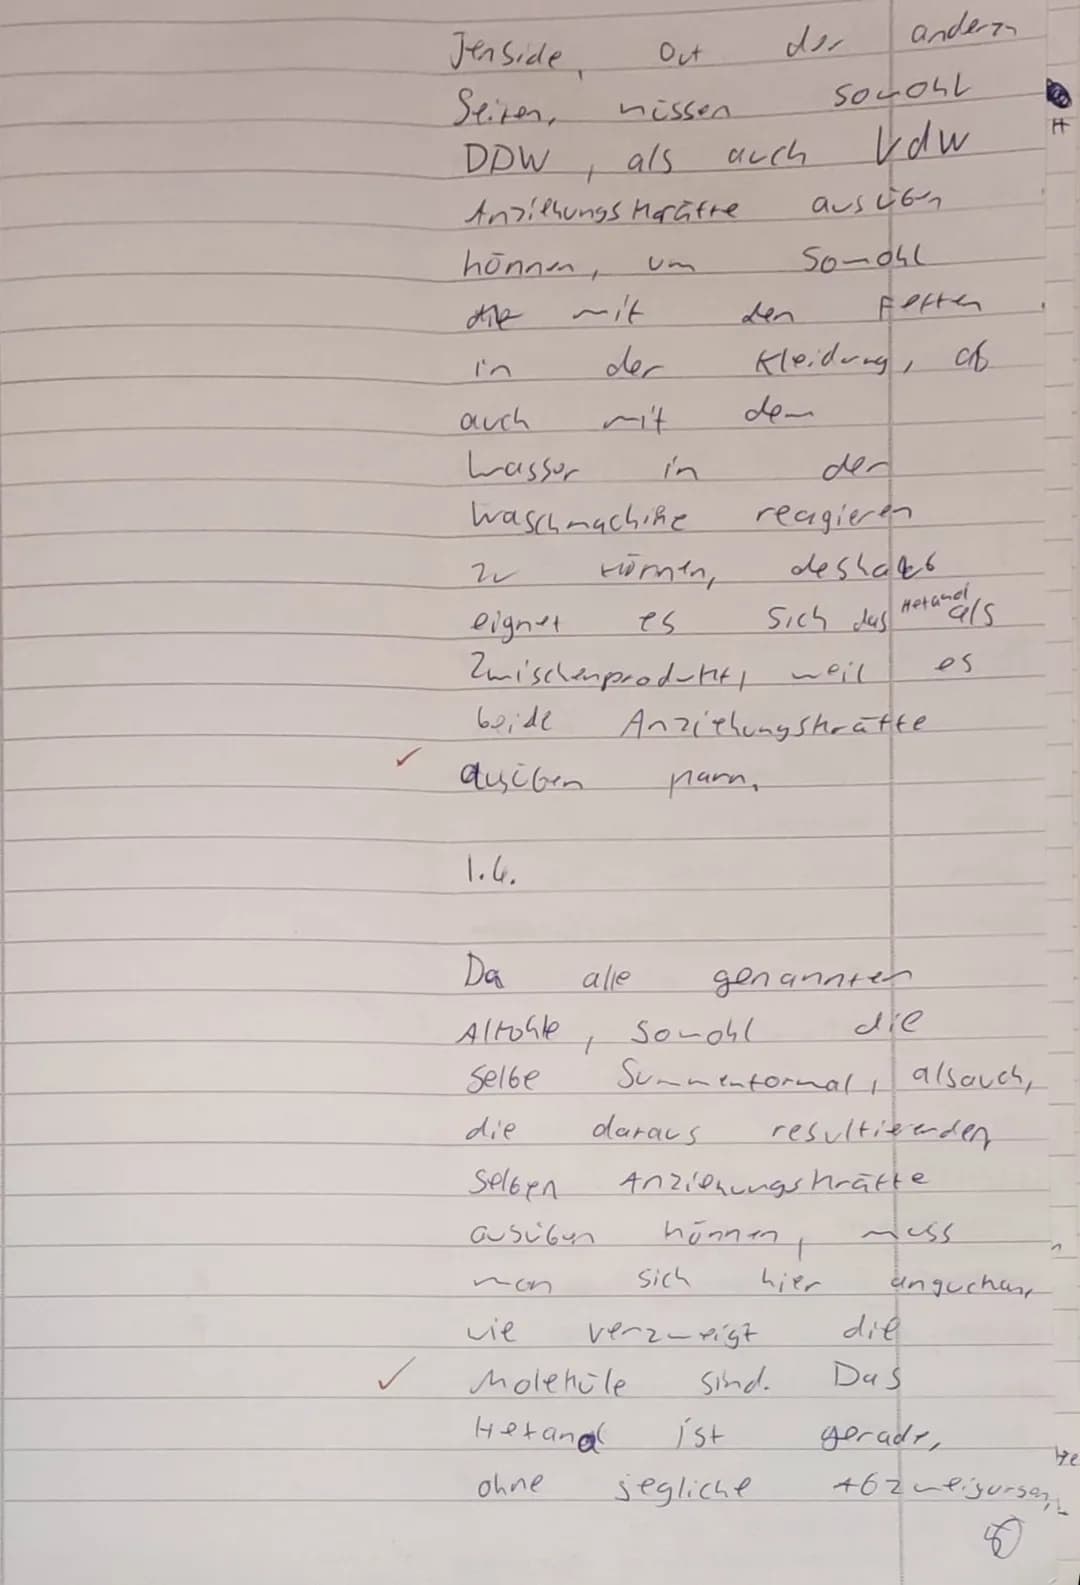 Tenside, auf der andern
Seiten, müssen sowohl
DDW, als auch VdW
Anziehungskräfte ausüben
können, um sowohl
mit den Fetten
in der Kleidung, als
auch mit dem
Wasser in der
Waschmachine reagieren
zu können, deshalb
eignet es sich das Hexanol als
Zwischenprodukt, weil es
beide Anziehungskräfte
ausüben kann.
1.4.
Da alle genannten
Alkohle, sowohl die
selbe Summenformal, alsauch,
die daraus resultierenden
selben Anziehungskräfte
ausüben können, muss
man sich hier anguchen,
wie verzweigt die
Moleküle sind. Das
Hexanol ist gerade,
ohne jegliche